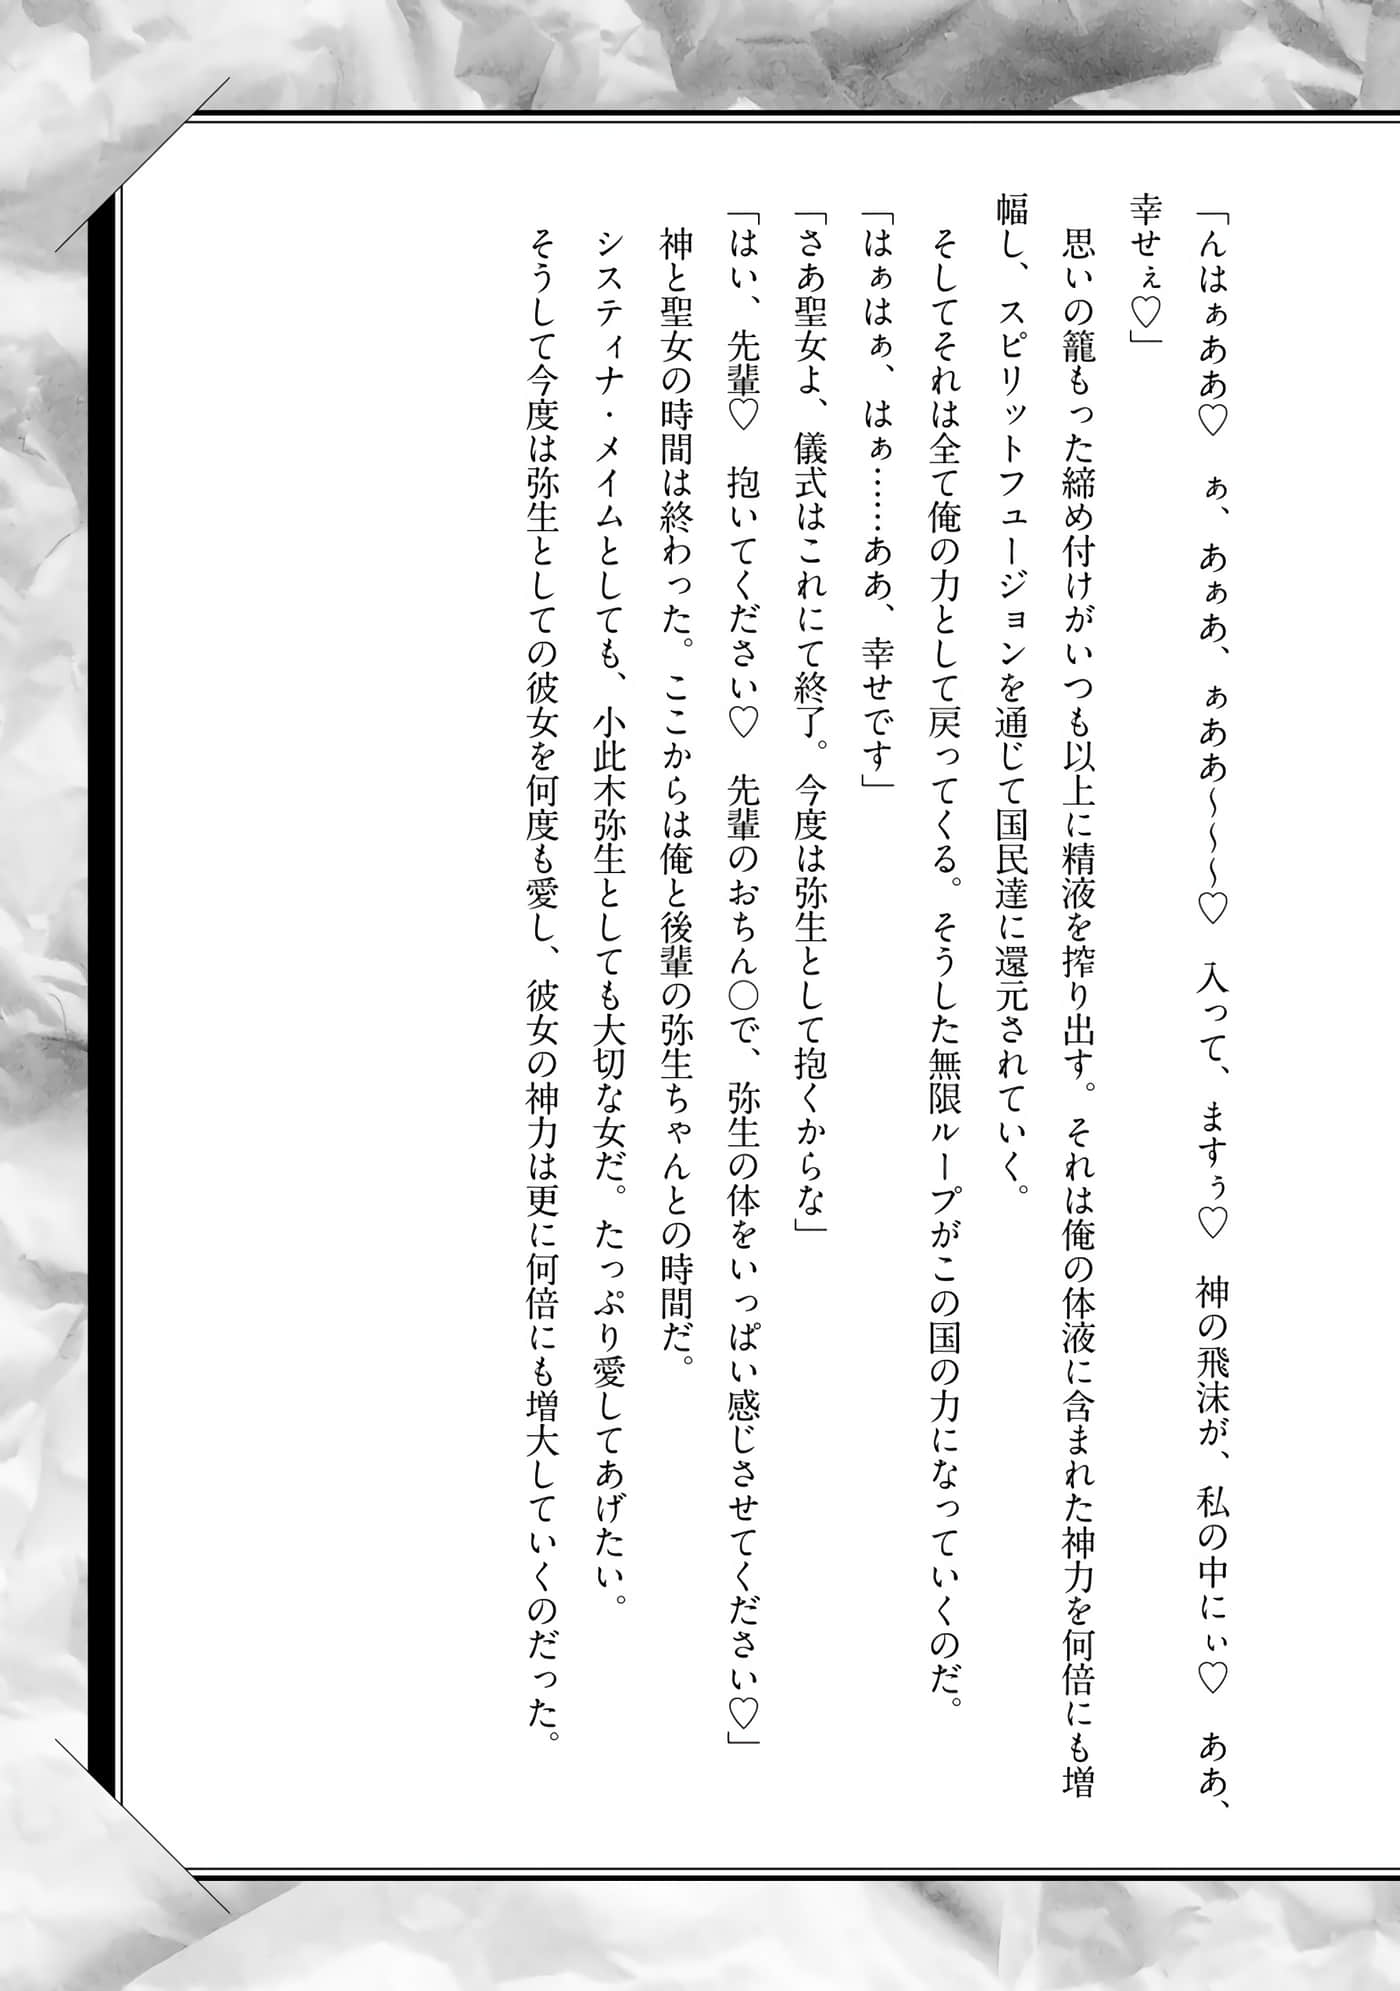 「んはぁああ♡　ぁ、あぁあ、ぁああ～～～♡　入って、ますぅ♡　神の飛沫が、私の中にぃ♡　ああ、
幸せぇ♡」
　思いの籠もった締め付けがいつも以上に精液を搾り出す。それは俺の体液に含まれた神力を何倍にも増
幅し、スピリットフュージョンを通じて国民達に還元されていく。
　そしてそれは全て俺の力として戻ってくる。そうした無限ループがこの国の力になっていくのだ。
「はぁはぁ、はぁ……ああ、幸せです」
「さあ聖女よ、儀式はこれにて終了。今度は弥生として抱くからな」
「はい、先輩♡　抱いてください♡　先輩のおちん〇で、弥生の体をいっぱい感じさせてください♡」
　神と聖女の時間は終わった。ここからは俺と後輩の弥生ちゃんとの時間だ。
　システィナ・メイムとしても、小此木弥生としても大切な女だ。たっぷり愛してあげたい。
　そうして今度は弥生としての彼女を何度も愛し、彼女の神力は更に何倍にも増大していくのだった。